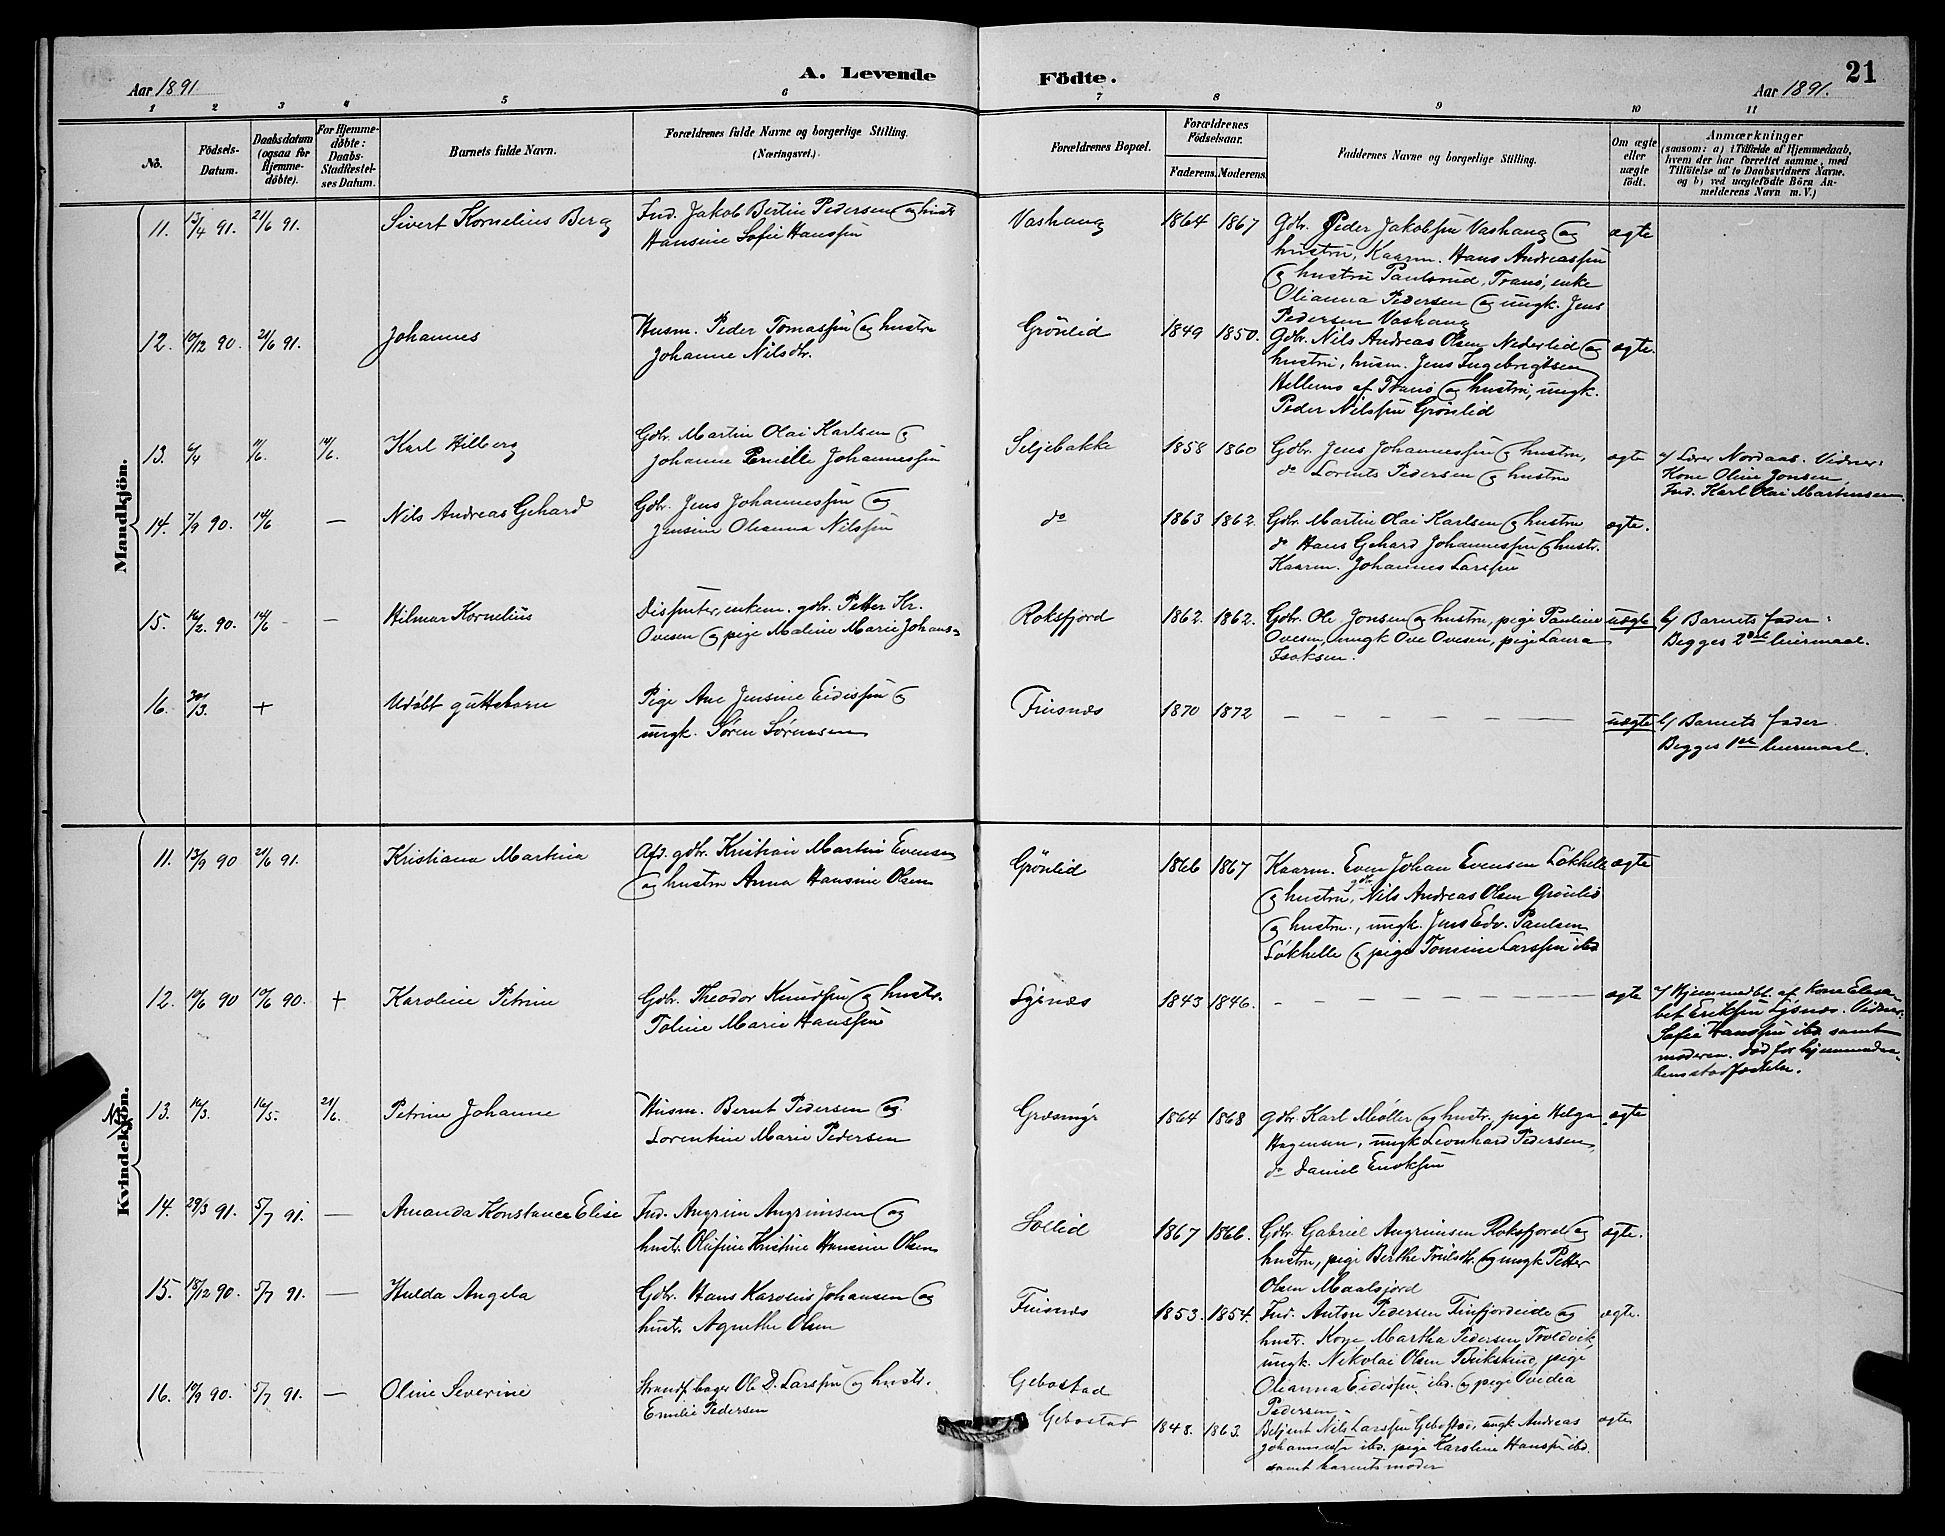 A. Levende
Födte.
21
Aar 1891.
Aar 1891.
1 2 3 4 5 6 7 8 9 10 11
No.
Födsels-
Datum.
Daabsdatum
(ogsaa for
Hjemme-
døbte).
For Hjemme-
døbte:
Daabs-
Stadfæstel-
ses Datum.
Barnets fulde Navn.
Forældrenes fulde Navne og borgerlige Stilling.
(Næringsvei.)
Forældrenes Bopæl.
Forældrenes
Födselsaar.
Faderens. Moderens.
Faddernes Navne og borgerlige Stilling.
Om ægte
eller
uægte
født.
Anmærkninger
(saasom: a) i Tilfælde af Hjemmedaab,
hvem der har forrettet samme, med
Tilföielse af to Daabsvidners Navne.
og b) ved uægtefödte Börn An-
melderens Navn m. V.)
Mandkjön.
11. 13/4 91. 21/6 91. Sivert Kornelius Berg
Ind. Jakob Bertin Pedersen og hustr
Hansine Sofie Hanssen
Vashaug 1864 1867
Gdbr. Peder Jakobsen Vashaug og
hustru, Kaarm. Hans Andreassen
og hustru Paulsrud, Tranø, enke
Olianna Pedersen og ungk. Jens
Pedersen Vashaug
ægte
12. 10/12 90. 21/6 91. Johannes
Husm. Peder Tomassen og hustru
Johanne Nilsdtr.
Grönlid 1849 1850.
Gdbr. Nils Andreas Olsen Nederlid og
hustru, husm. Jens Ingebregtsen
Hellemo af Tranö og hustru, ungk.
Peder Nilssen Grönlid
ægte.
13. 6/4 11/6. 14/6. Karl Hilberg
Gdbr. Martin Olai Karlsen og
Johanne Pernille Johannessen
Seljebakke 1858 1860
Gdbr. Jens Johannessen og hustru,
do Lorents Pedersen og hustru
ægte
a/ Lærer Nordaas. Vidner:
Kone Oline Jonsen,
Ind. Karl Olai Martinsen.
14. 7/9 90. 14/6 — Nils Andreas Gehard
Gdbr. Jens Johannessen og
Jensine Olianna Nilssen
do 1863 1862.
Gdbr. Martin Olai Karlsen og hustru
do Hans Gehard Johannessen og hustr.
Kaarm. Johannes Larssen
ægte.
15. 16/2. 90. 14/6 - — Hilmar Kornelius
Dissenter, enkem. gdbr. Petter Kr.
Ovesen og pige Maline Marie Johans-
Roksfjord 1862. 1862.
Gdbr. Ole Jonsen og hustru, pige Pauline
Ovesen, ungk Ove Ovesen, pige Laura
Isaksen.
uægte
b/ Barnets fader:
Begges 2det leiermaal.
16. 30/3. + Udöbt guttebarn
Pige Ane Jensine Eidissen og
ungk. Søren Sørensen
Finsnæs 1870 1872
uægte
b/ Barnets fader
Begges 1ste leiermaal.
Kvindekjön.
11. 13/9 90 21/6 91. Kristiana Martina
Afd. gdbr. Kristian Martin Evensen
og hustru Anna Hansine Olsen
Grönlid 1866 1867
Kaarm. Even Johan Evensen Løkhelle
og hustru, gdbr. Nils Andreas Olsen Grönlid
og hustru, ungk. Jens Edv. Paulsen
Løkhelle og pige Tomine Larssen ibd
ægte
12. 10/6 90 10/6 90. + Karoline Petrine
Gdbr. Theodor Knudsen og hustr.
Toline Marie Hanssen
Lysnæs 1843 1846.
ægte
a/ Hjemmedbt. af Kone Elisa-
bet Eriksen Lysnæs. Vidner:
Sofie Hanssen ibd. samt
moderen. Död før hjemmedaa-
bens stadfæstelse.
13. 16/3. 16/5. 21/6. Petrine Johanne
Husm. Bernt Pedersen og
Lorentine Marie Pedersen
Græsmyr 1864 1868
Gdbr. Karl Møller og hustr. pige Helga
Hagensen, ungk Leonhard Pedersen,
do Daniel Enoksen
ægte
14. 29/3 91. 5/7 91. — Amanda Konstance Elise
Ind. Angrim Angrimsen og
hustr. Olufine Kristine Hansine Olsen
Sollid 1867 1866.
Gdbr. Gabriel Angrimsen Roksfjord og
hustru, pige Berthe og ungk Petter
Olsen Maalsjord
ægte.
15. 18/12 90. 5/7 91. — Hulda Angela
Gdbr. Hans Karolius Johansen og
hustr. Agnethe Olsen
Finsnæs 1853. 1854.
Ind. Anton Pedersen Finfjordeide og
hustr. Kone Martha Pedersen Troldvik,
ungk. Nikolai Olsen pige
Olianna Eidissen ibd. og pige Ovidia
Pedersen.
ægte.
16. 10/9 90. 5/7 91. — Oline Severine
Ole D. Larssen og hustr.
Emilie Pedersen
Gebostad
Gebostad 1848. 1863.
Betjent Nils Larssen Gebostad, ungk Andreas
Johannessen ibd. pige Karoline Hanssen ibd.
samt barnets moder
ægte